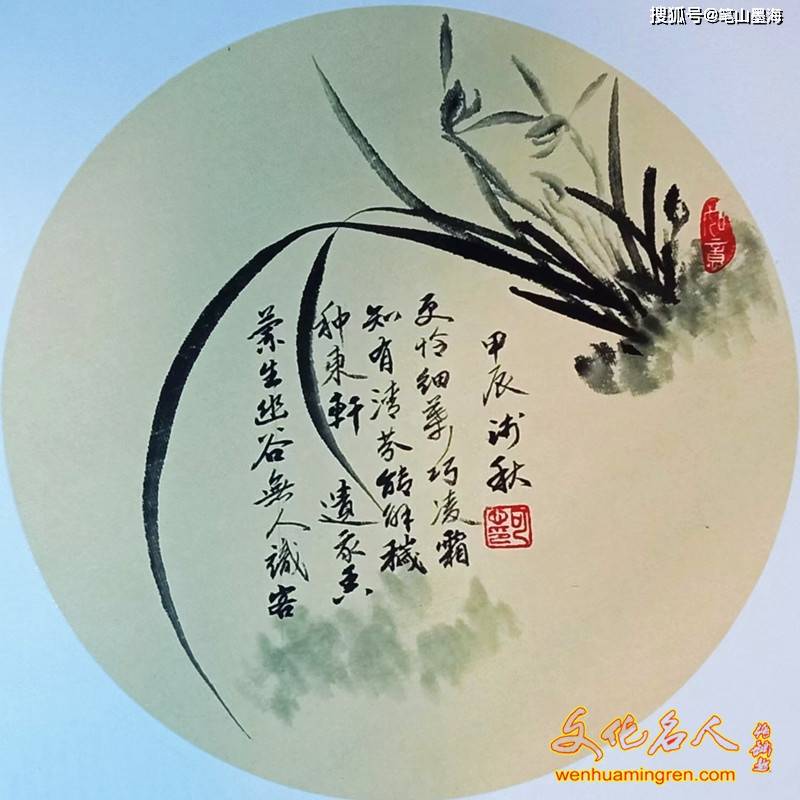 搜狐号@笔山墨海
蘭生幽谷無人識客
种東軒遺我香
知有清芬能解穢
更怜細葉巧凌霜
甲辰浅秋
如意
文化名人
wenhuamingren.com